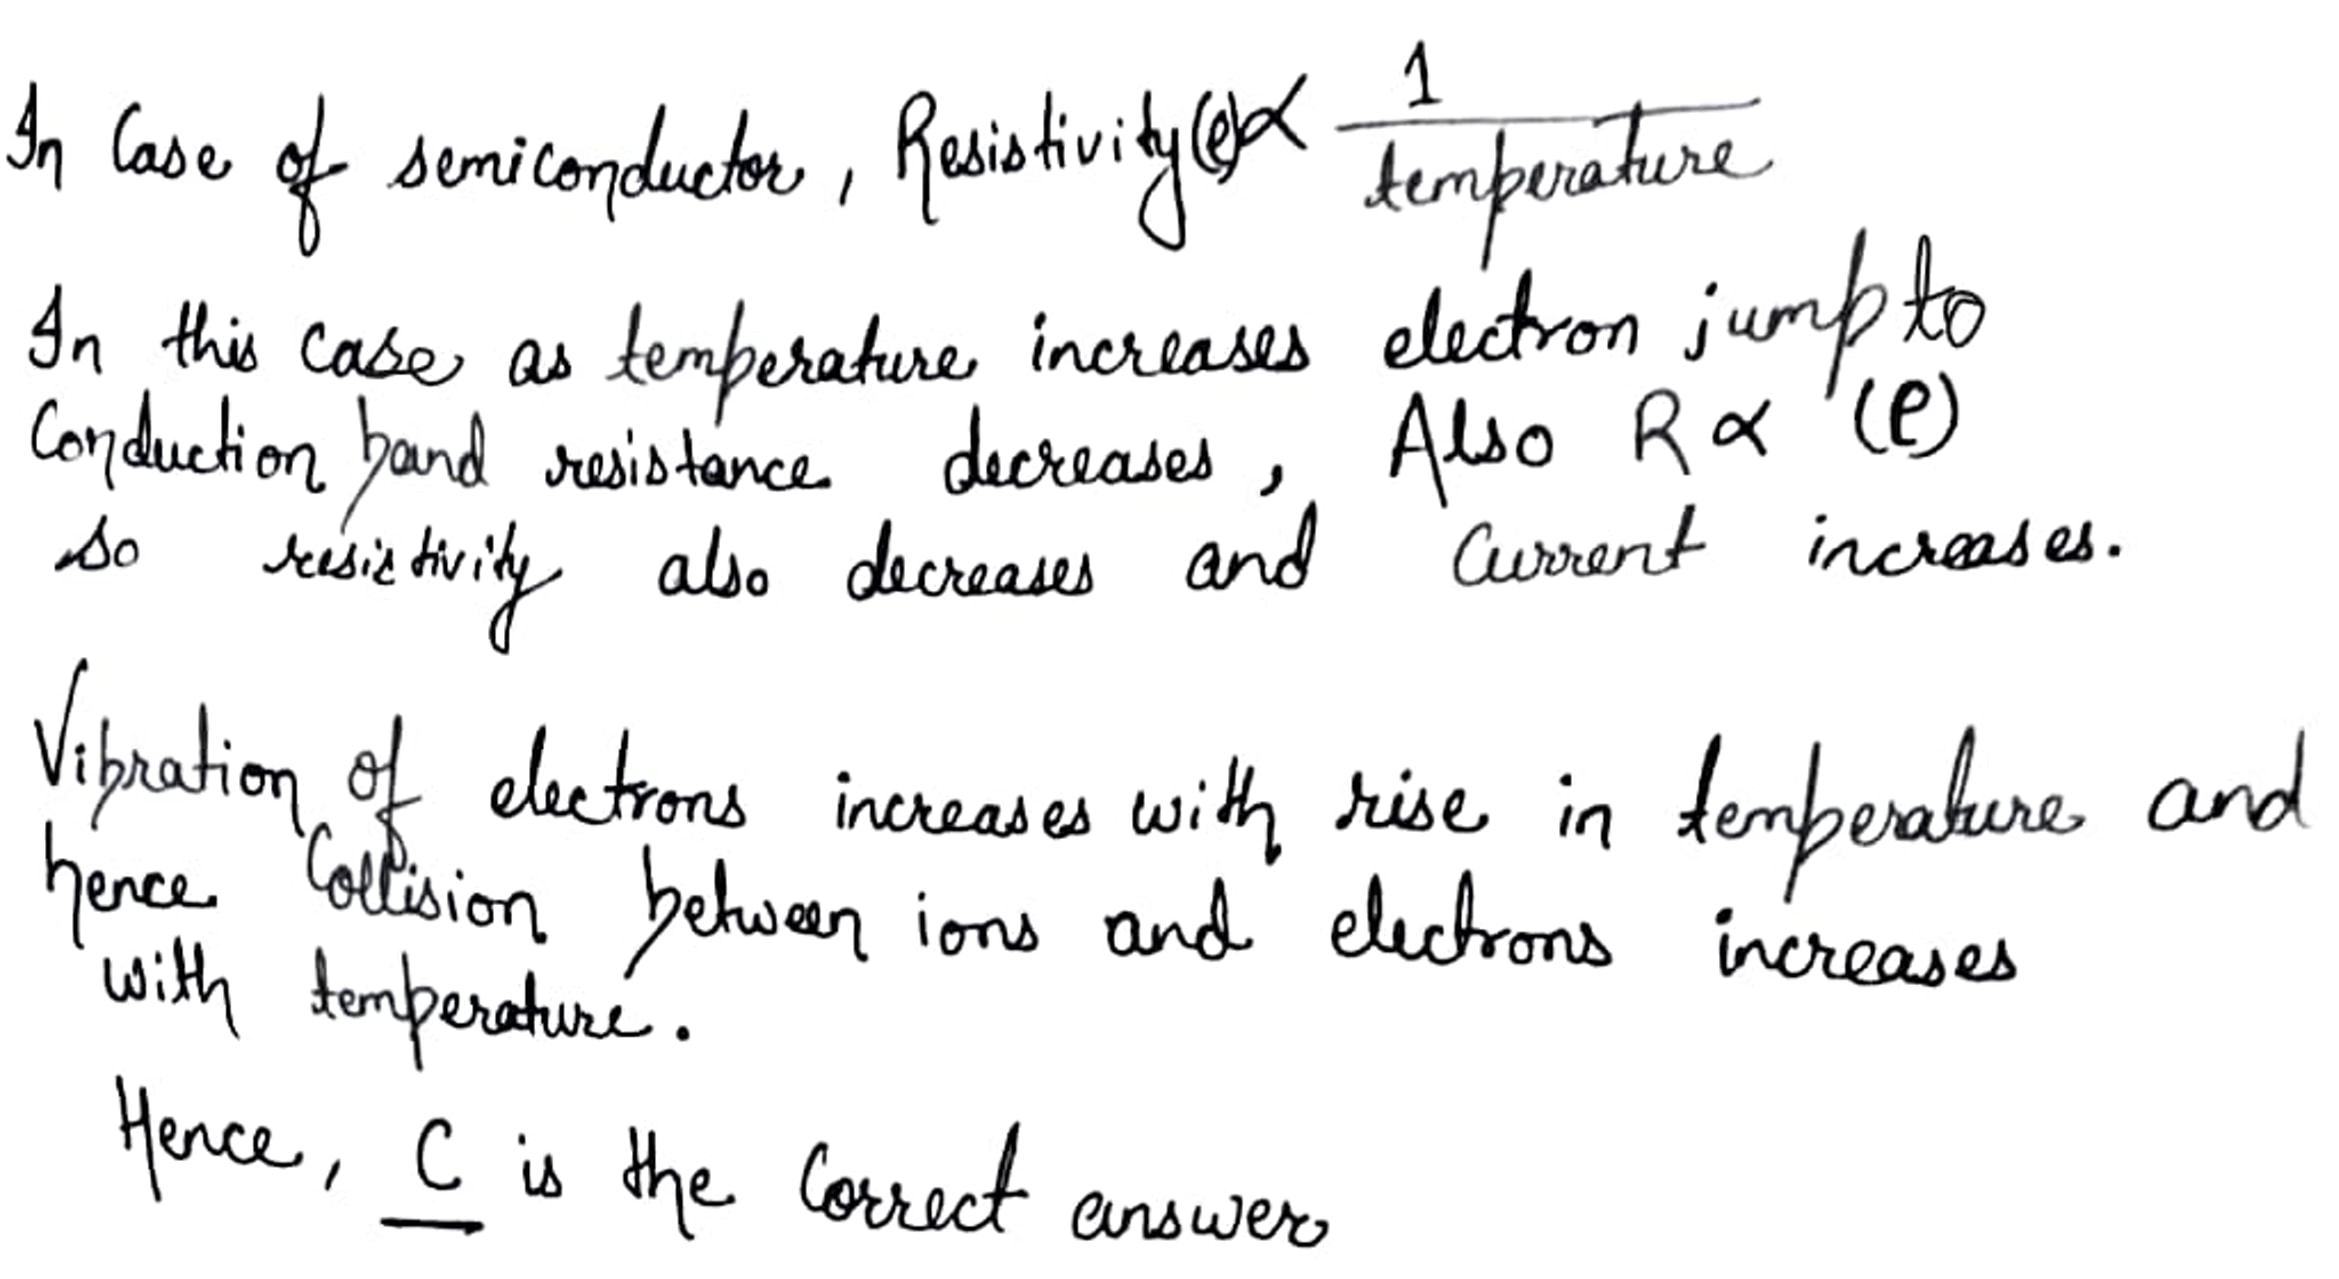 In Case of semiconductor, Resistivity (ρ) ∝ 1/temperature
In this case as temperature increases electron jump to
Conduction band resistance decreases, Also R ∝ (ρ)
so resistivity also decreases and Current increases.
Vibration of electrons increases with rise in temperature and
hence Collision between ions and electrons increases
with temperature.
Hence, C is the Correct answer